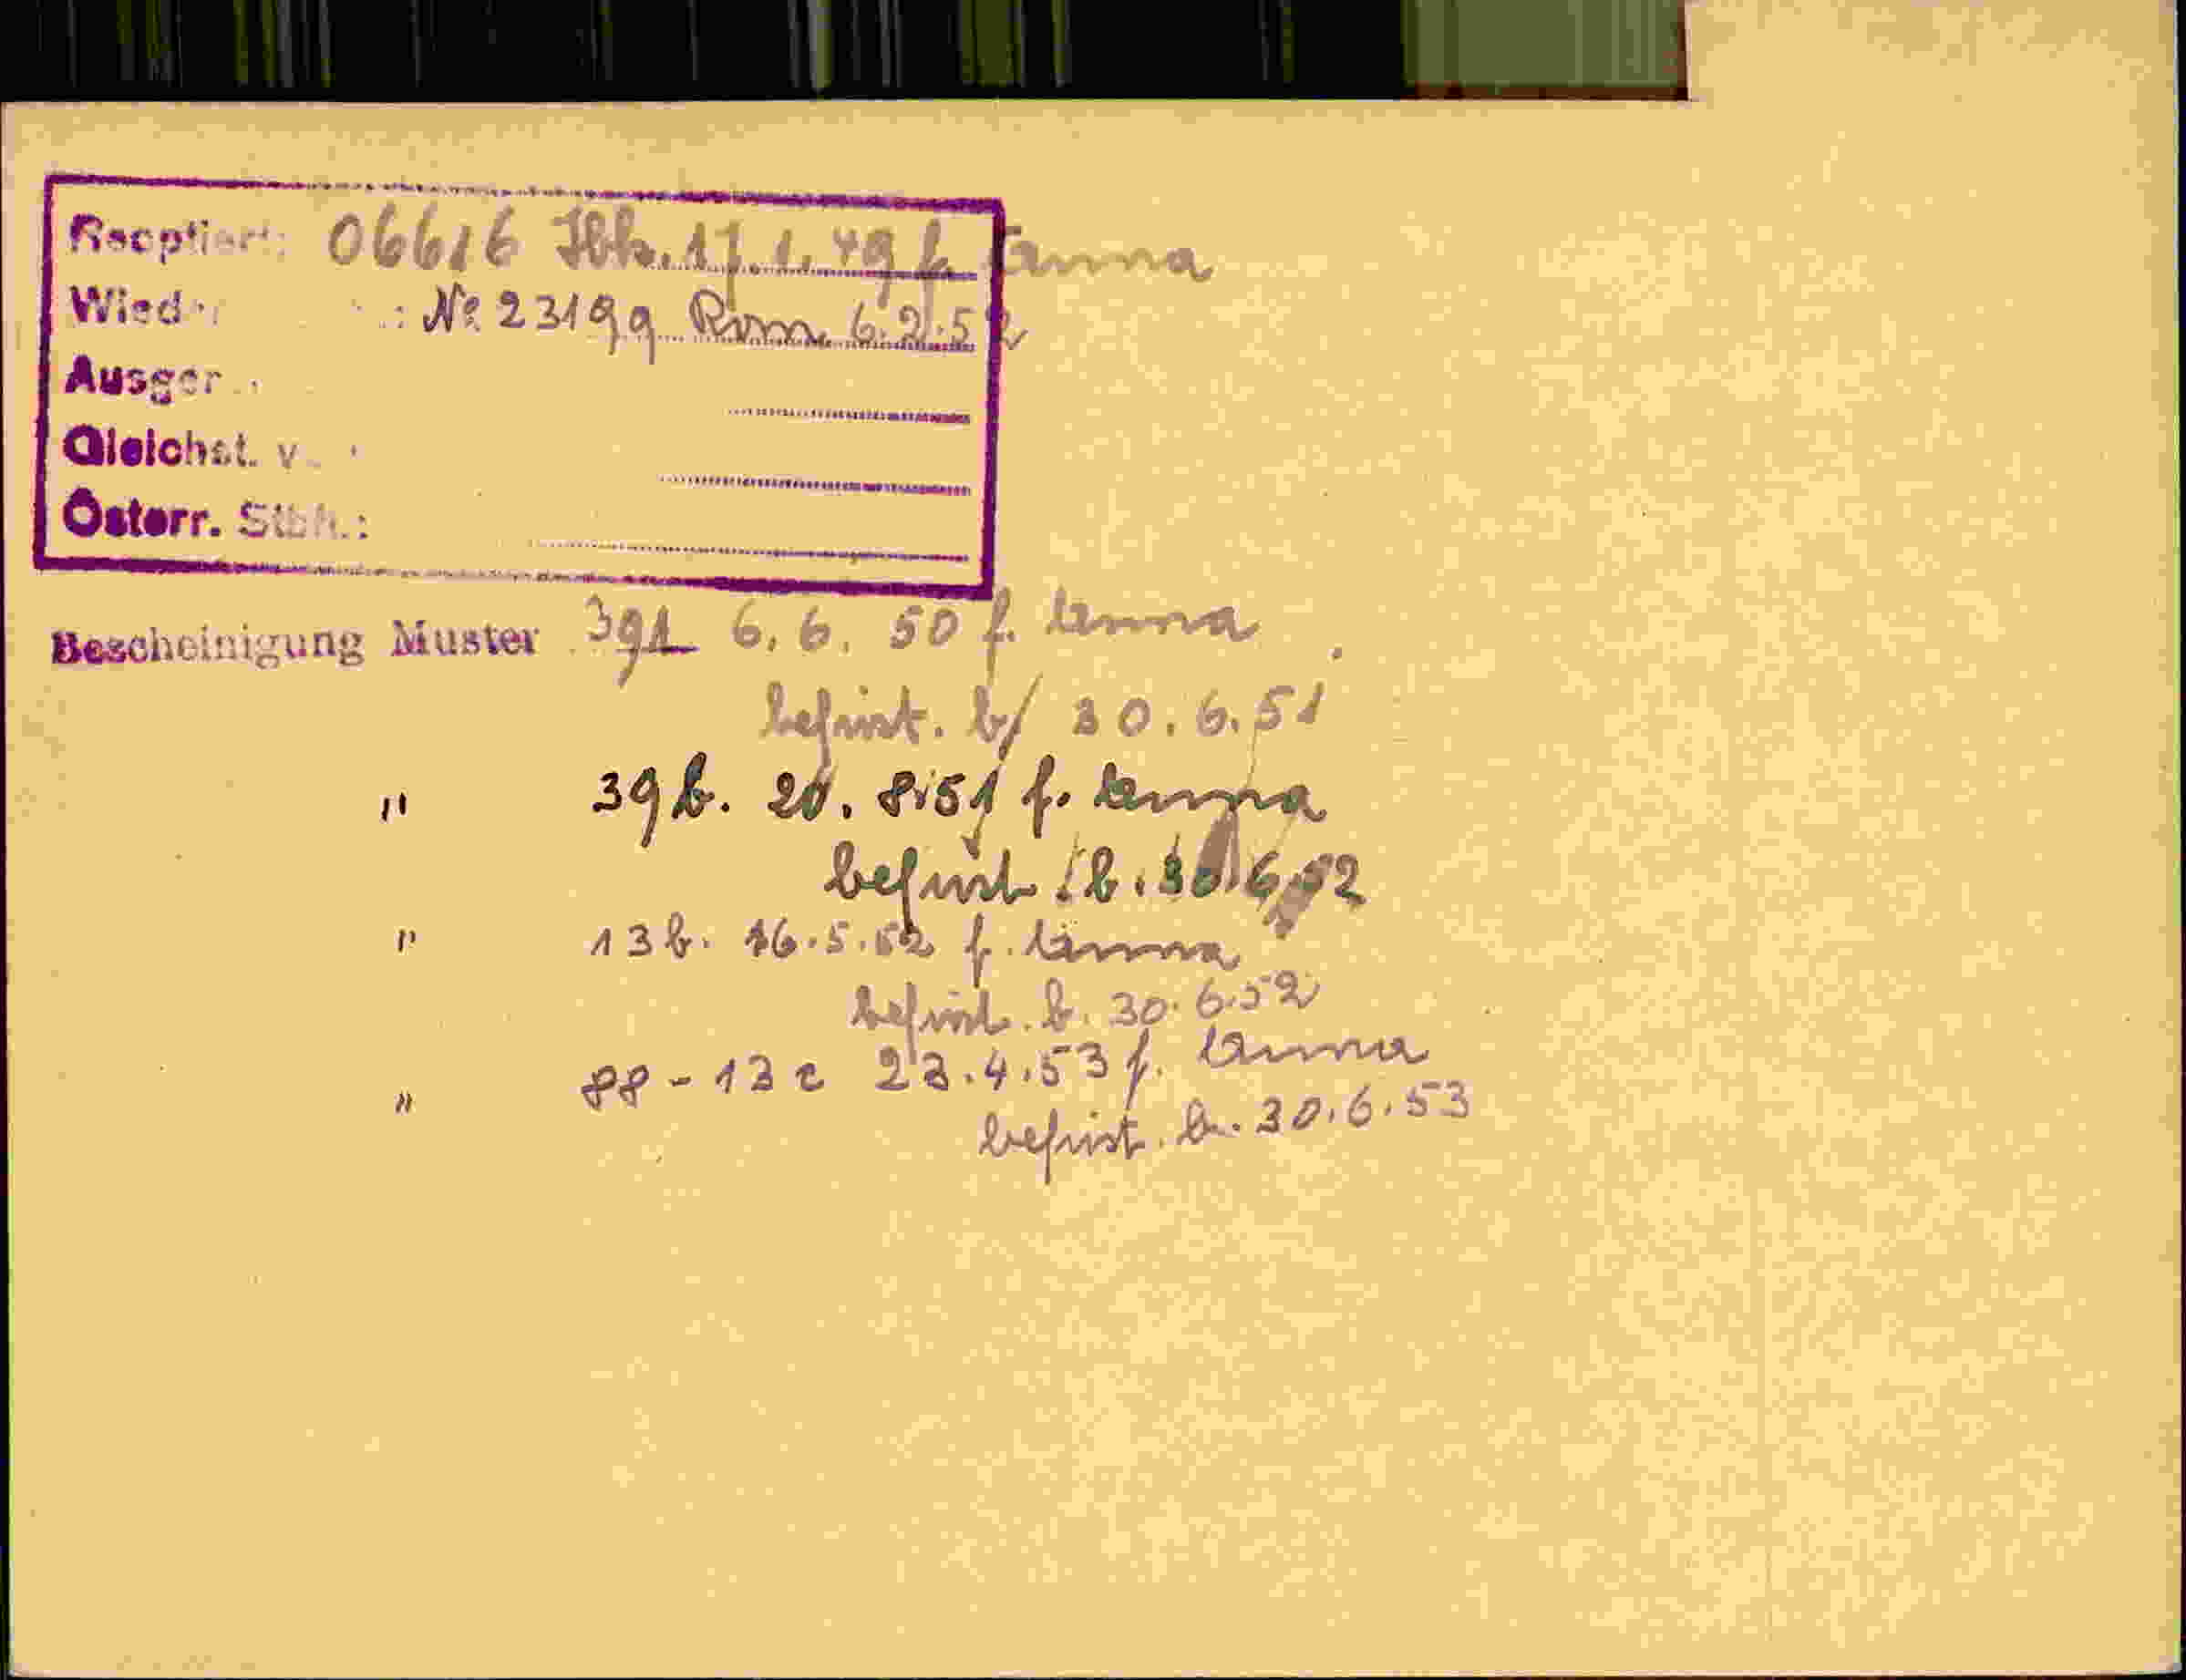 Reoptiert: 06616 Ibk. 17.1.49 f. Anna
Wieder : № 23199 Rom 6.2.52
Ausger
Gleichst. v.
Österr. Stbh.:
Bescheinigung Muster 391 6.6.50 f. Anna
befrist. b/ 30.6.51
" 39 b. 20.8.51 f. Anna
befrist. b. 30.6.52
" 13 b. 16.5.52 f. Anna
befrist. b. 30.6.52
" 88 - 13 c 23.4.53 f. Anna
befrist. b. 30.6.53